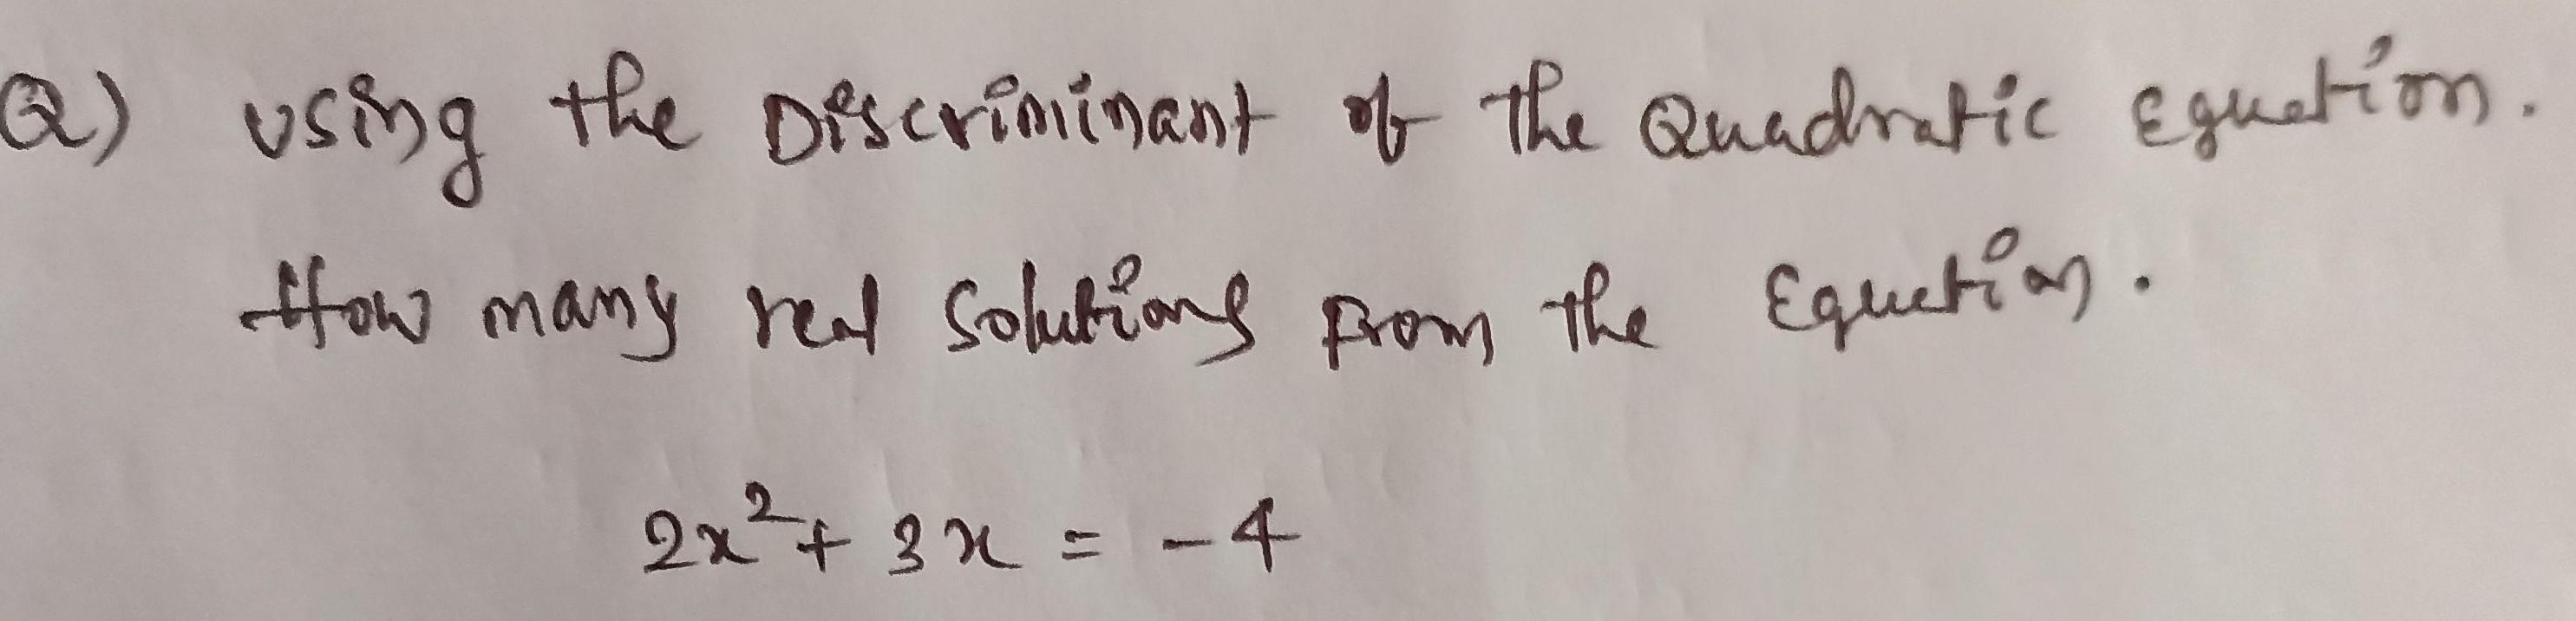 Q) Using the Discriminant of the Quadratic Equation.
How many real solutions from the Equation.
2x² + 3x = -4